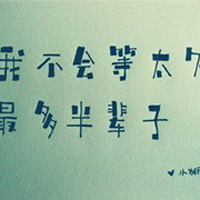 我不会等太久
最多半辈子
♥ 小